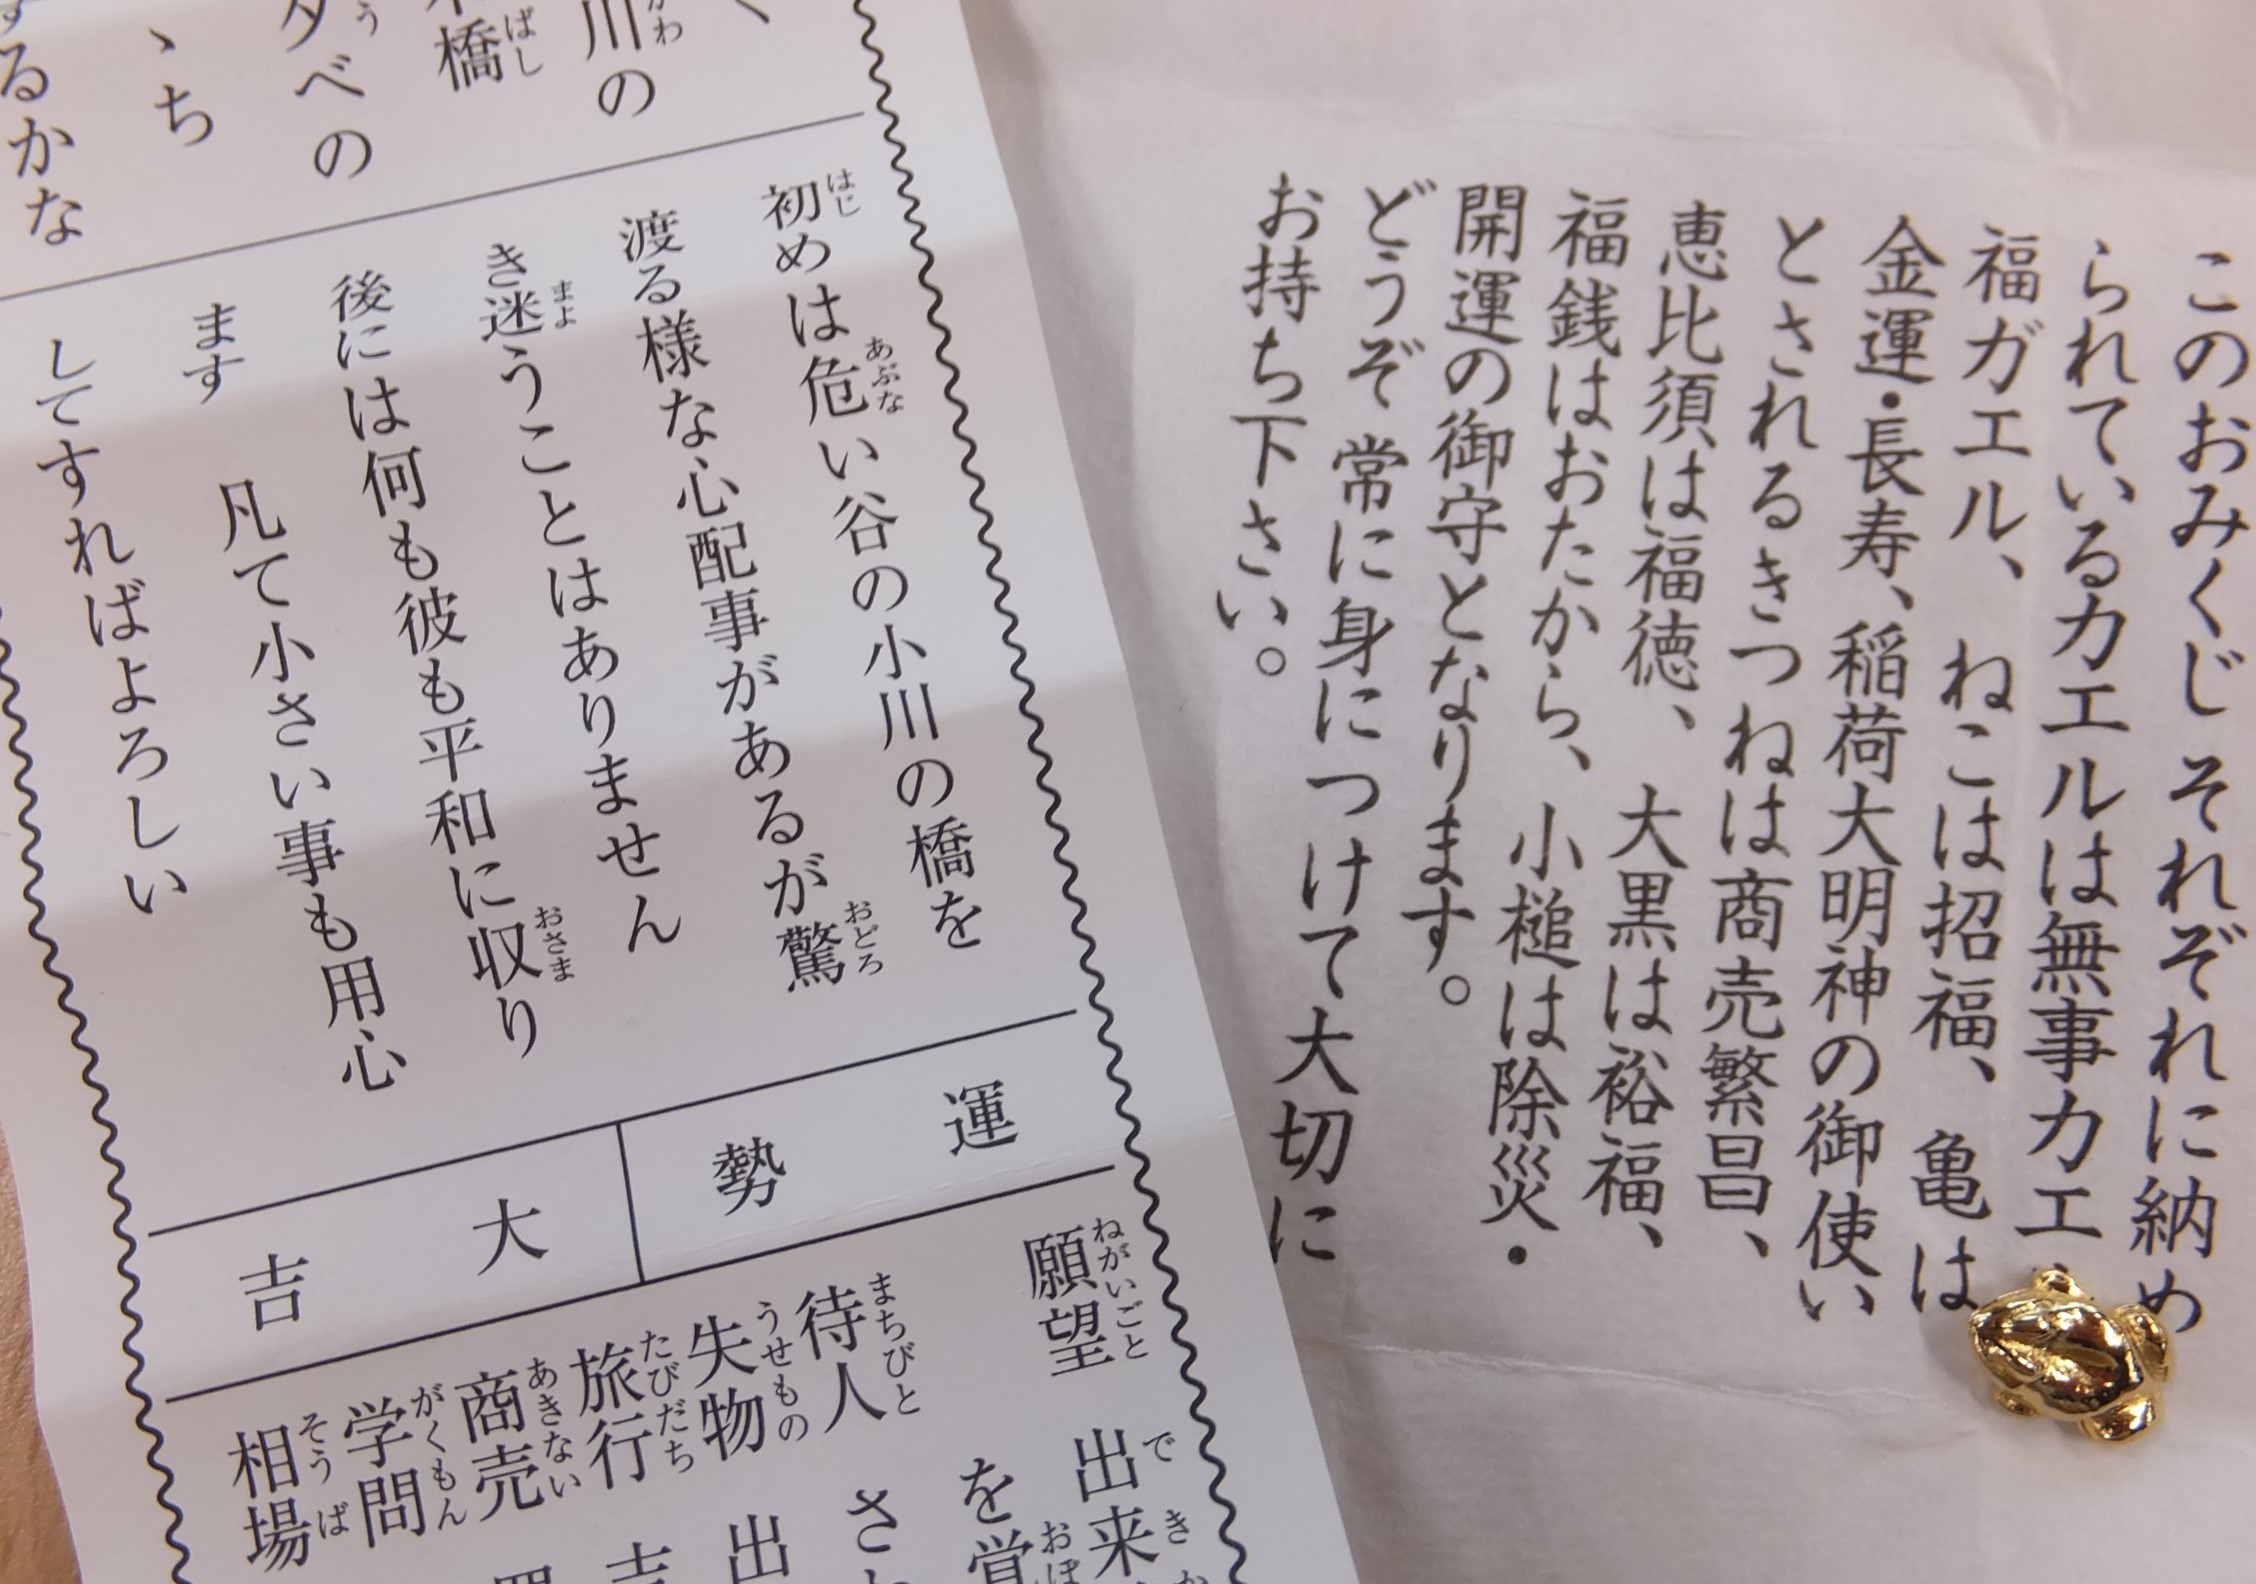 このおみくじそれぞれに納め
られているカエルは無事カエ
福ガエル、ねこは招福、亀は
金運・長寿、稲荷大明神の御使い
とされるきつねは商売繁昌、
恵比須は福徳、大黒は裕福、
福銭はおたから、小槌は除災・
開運の御守となります。
どうぞ常に身につけて大切に
お持ち下さい。
川の
橋
夕べの
ゝち
するかな
初めは危い谷の小川の橋を
渡る様な心配事があるが驚
き迷うことはありません
後には何も彼も平和に収り
ます 凡て小さい事も用心
してすればよろしい
運勢
大吉
願望 出来
を覚
待人 さ
失物 出
旅行 吉
商売
学問
相場